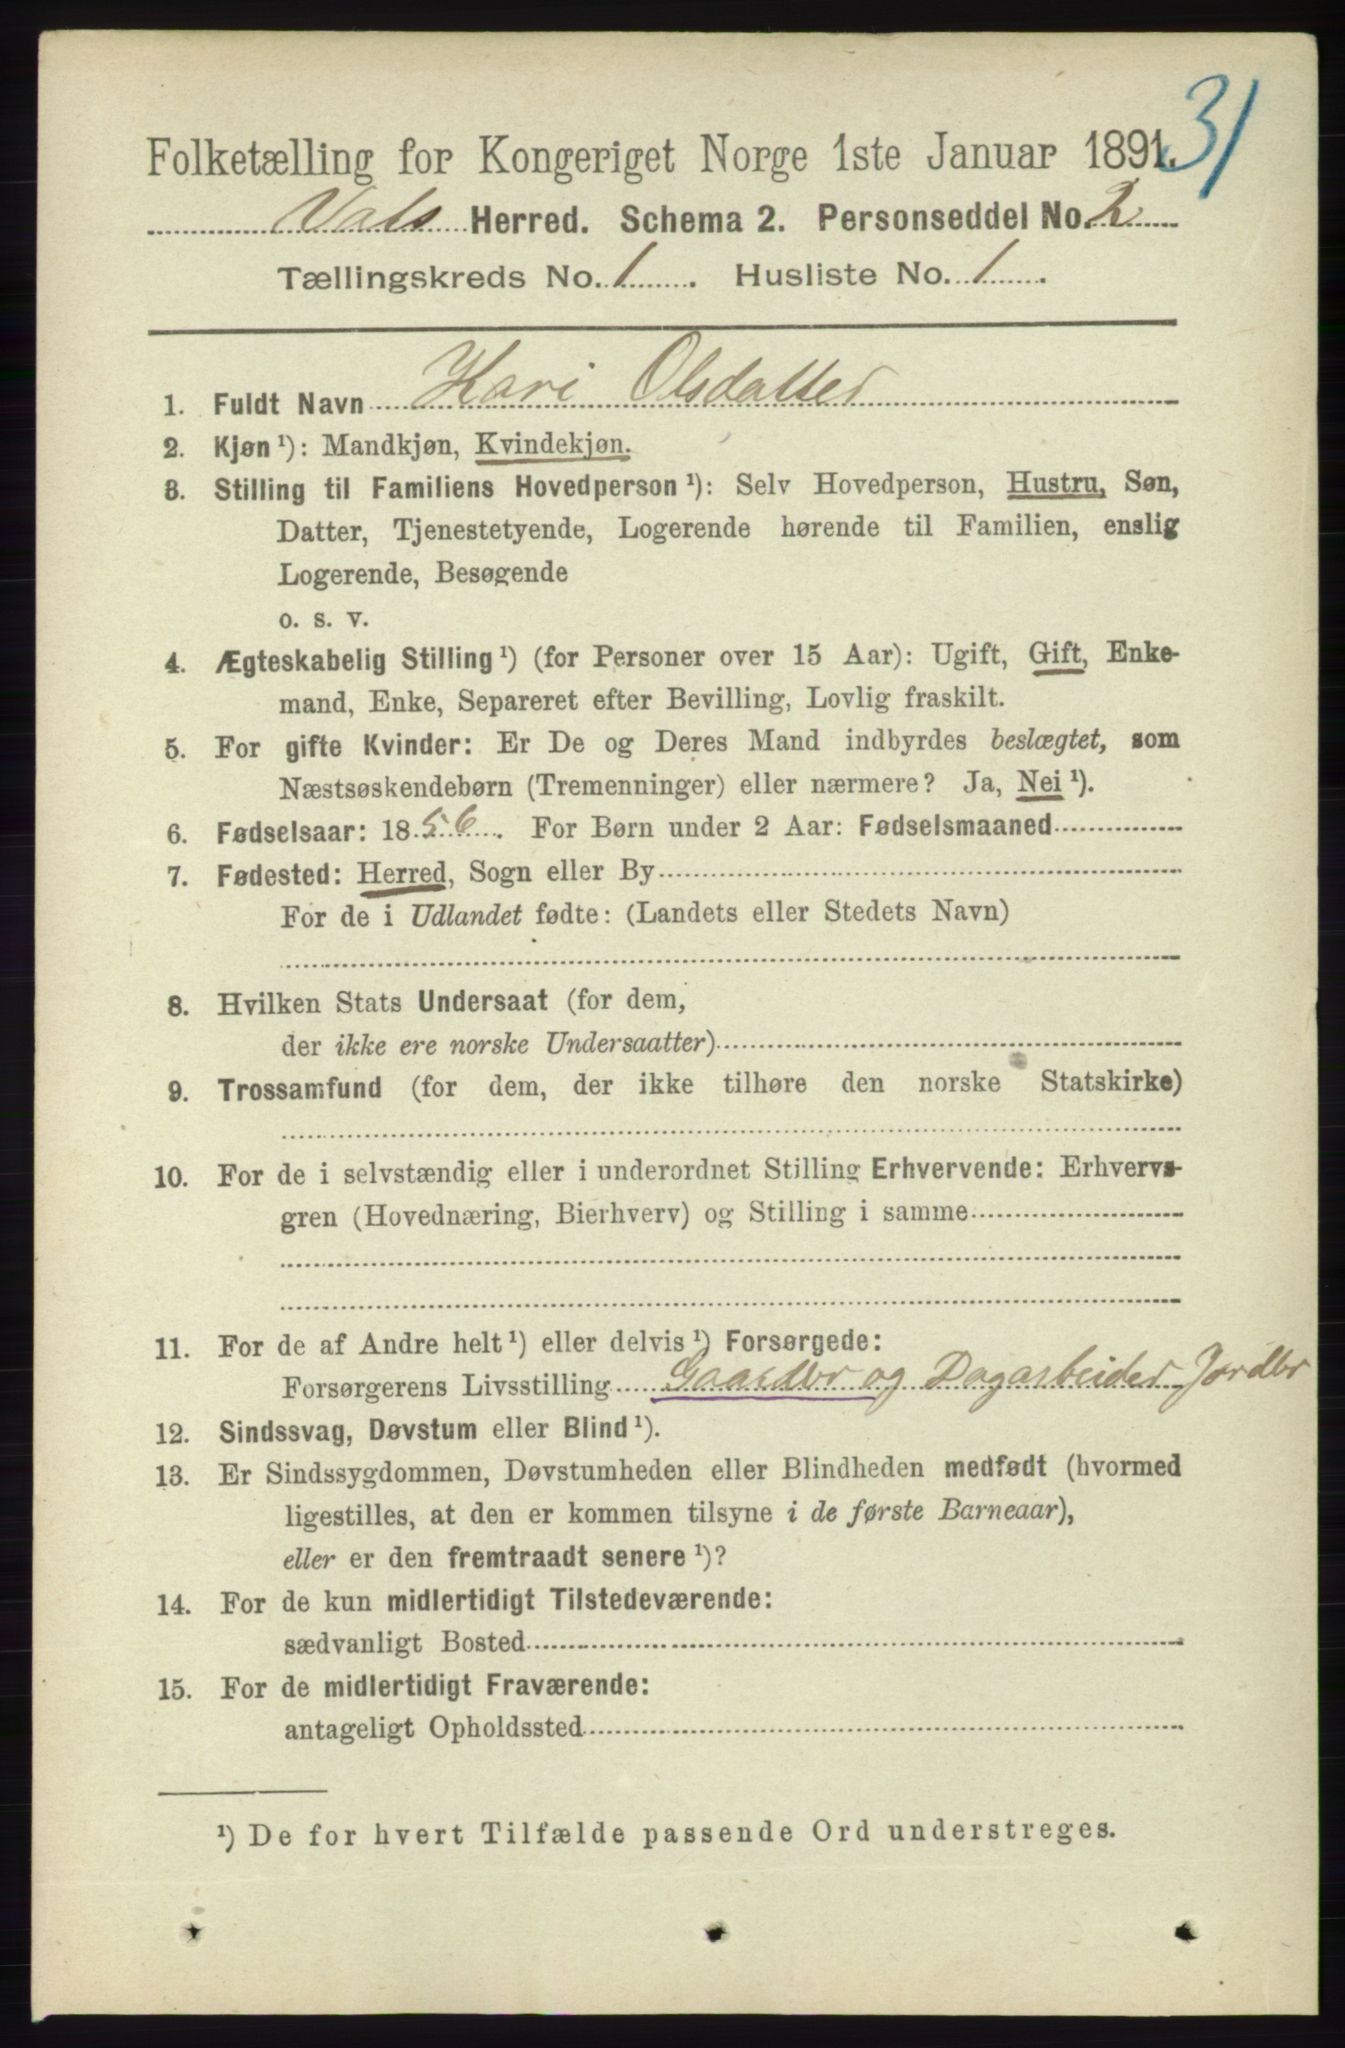 31
Folketælling for Kongeriget Norge 1ste Januar 1891.
Vats Herred. Schema 2. Personseddel No. 2
Tællingskreds No. 1. Husliste No. 1.
1. Fuldt Navn Kari Olsdatter
2. Kjøn ¹): Mandkjøn, Kvindekjøn.
3. Stilling til Familiens Hovedperson ¹): Selv Hovedperson, Hustru, Søn,
Datter, Tjenestetyende, Logerende hørende til Familien, enslig
Logerende, Besøgende
o. s. v.
4. Ægteskabelig Stilling ¹) (for Personer over 15 Aar): Ugift, Gift, Enke-
mand, Enke, Separeret efter Bevilling, Lovlig fraskilt.
5. For gifte Kvinder: Er De og Deres Mand indbyrdes beslægtet, som
Næstsøskendebørn (Tremenninger) eller nærmere? Ja, Nei ¹).
6. Fødselsaar: 1856. For Børn under 2 Aar: Fødselsmaaned
7. Fødested: Herred, Sogn eller By
For de i Udlandet fødte: (Landets eller Stedets Navn)
8. Hvilken Stats Undersaat (for dem,
der ikke ere norske Undersaatter)
9. Trossamfund (for dem, der ikke tilhøre den norske Statskirke)
10. For de i selvstændig eller i underordnet Stilling Erhvervende: Erhvervs-
gren (Hovednæring, Bierhverv) og Stilling i samme
11. For de af Andre helt ¹) eller delvis ¹) Forsørgede:
Forsørgerens Livsstilling Gaardbr og Dagarbeider Jordbr
12. Sindssvag, Døvstum eller Blind ¹).
13. Er Sindssygdommen, Døvstumheden eller Blindheden medfødt (hvormed
ligestilles, at den er kommen tilsyne i de første Barneaar),
eller er den fremtraadt senere ¹)?
14. For de kun midlertidigt Tilstedeværende:
sædvanligt Bosted
15. For de midlertidigt Fraværende:
antageligt Opholdssted
¹) De for hvert Tilfælde passende Ord understreges.